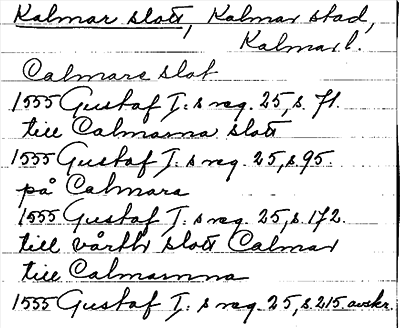 Kalmar slott, Kalmar stad,
Kalmar l.
Calmare slot
1555 Gustaf I: s reg. 25, s. 71.
till Calmarna slott
1555 Gustaf I: s reg. 25, s. 95.
på Calmara
1555 Gustaf I: s reg. 25, s. 172.
till vårth slott Calmar
till Calmarnna
1555 Gustaf I: s reg. 25, s. 215 avskr.